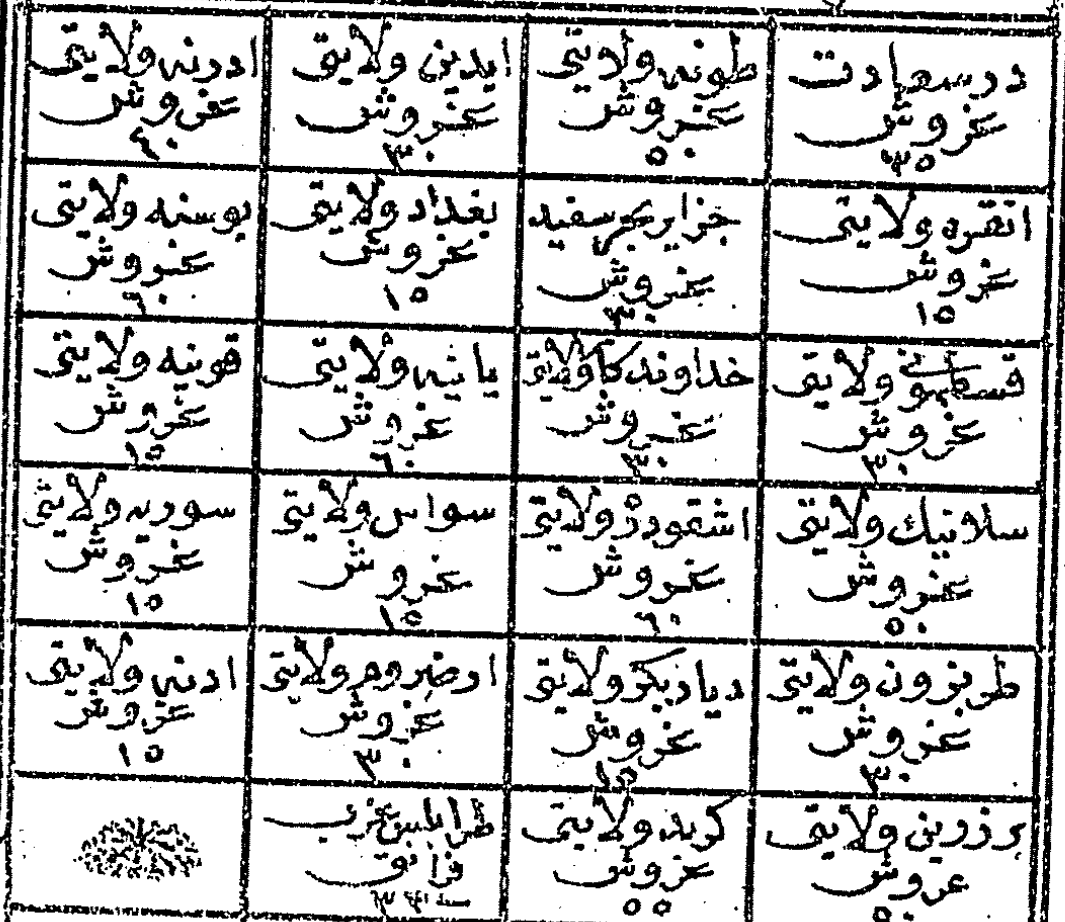 در سعادت
غروش
٣٥
طونه ولايتى
غروش
٥٠
ايدين ولايتى
غروش
٣٠
ادرنه ولايتى
غروش
٤٠
انقره ولايتى
غروش
١٥
جزاير بحر سفيد
غروش
بغداد ولايتى
غروش
١٥
بوسنه ولايتى
غروش
٦٠
قسطمونى ولايتى
غروش
٣٠
خداوندكار ولايتى
غروش
يانيه ولايتى
غروش
٦٠
قونيه ولايتى
غروش
١٥
سلانيك ولايتى
غروش
٥٠
اشقودره ولايتى
غروش
٦٠
سواس ولايتى
غروش
١٥
سوريه ولايتى
غروش
١٥
طربزون ولايتى
غروش
٣٠
ديار بكر ولايتى
غروش
١٥
ارضروم ولايتى
غروش
٣٠
ادنه ولايتى
غروش
١٥
پرزرين ولايتى
غروش
كريد ولايتى
غروش
٥٥
طرابلس غرب